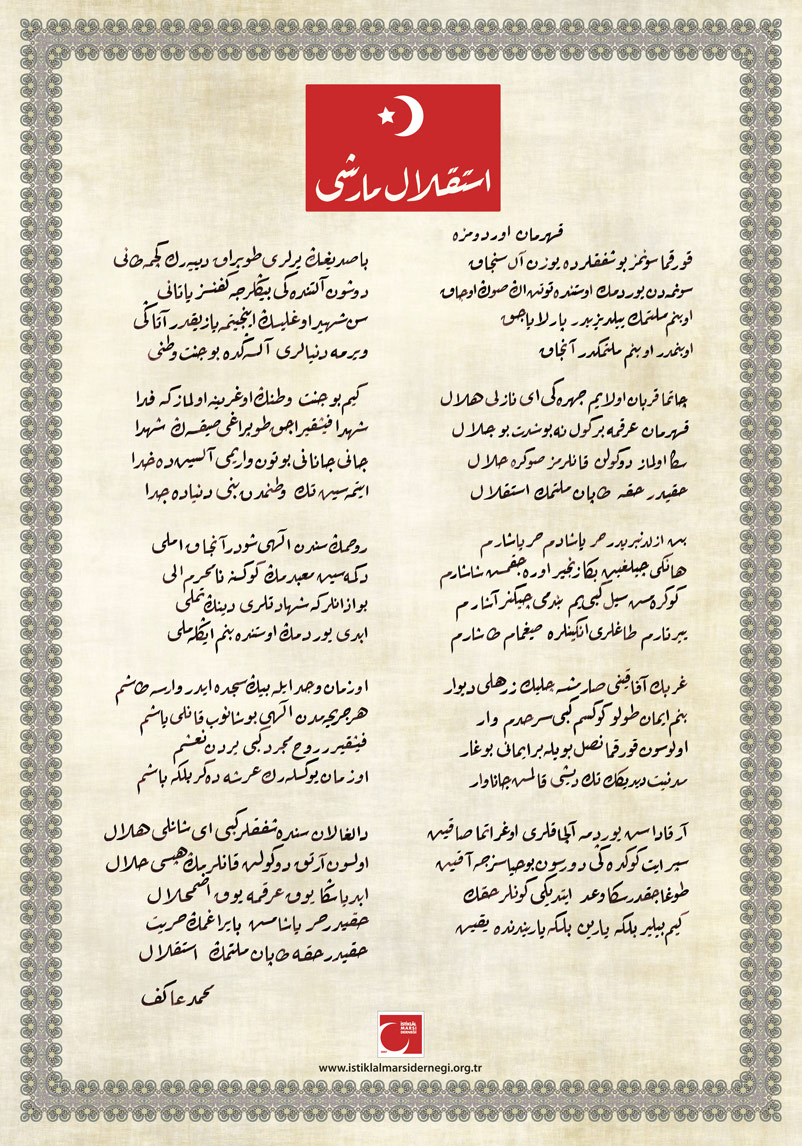 استقلال مارشی
قهرمان اوردومزه
قورقما سونمز بو شفقلرده یوزن آل سنجاق
سونمه‌دن یوردمك اوستنده توتن اڭ صوڭ اوجاق
او بنم ملتمڭ ییلدیزیدر پارلایاجق
او بنمدر او بنم ملتمكدر آنجاق
چاتما قربان اولایم چهره‌كی ای نازلی هلال
قهرمان عرقمه بر گول نه بو شدت بو جلال
سڭا اولماز دوكولن قانلرمز صوكره حلال
حقیدر حقه طاپان ملتمڭ استقلال
بن ازلدنبریدر حر یاشادم حر یاشارم
هانكی چیلغین بڭا زنجیر اوره‌جقمش شاشارم
كوكره‌مش سیل كبی‌یم بندمی چیكنر آشارم
ییرتارم طاغلری انگینلره صیغمام طاشارم
غربڭ آفاقینی صارمشسه چلیك زرهلی دیوار
بنم ایمان طولو كوكسم كبی سرحدم وار
اولوسون قورقما نصل بویله بر ایمانی بوغار
مدنیت دیدیكڭ تك دیشی قالمش جاناوار
آرقاداش یوردمه آلچاقلری اوغراتما صاقین
سپر ایت كوكده‌كی دورسون بو حیاسزجه آقین
طوغاجقدر سڭا وعد ایتدیكی كونلر حقك
كیم بیلیر بلكه یارین بلكه یاریندنده یقین
باصدیغڭ یرلری طوپراق دییه‌رك كچمه طانی
دوشون آلتنده‌كی بیڭلرجه كفنسز یاتانی
سن شهید اوغلیسڭ اینجیتمه یازیقدر آتاڭی
ویرمه دنیالری آلسه‌ڭده بو جنت وطنی
كیم بو جنت وطنڭ اوغرینه اولمازكه فدا
شهدا فیشقیراجق طوپراغی صیقسه‌ڭ شهدا
جانی جانانی بوتون واریمی آلسین‌ده خدا
ایتمه‌سین تك وطنمدن بنی دنیاده جدا
روحمڭ سندن الهی شودر آنجاق املی
دكمه‌سین معبدمڭ كوكسنه نامحرم الی
بو اذانلر كه شهادتلری دینڭ تملی
ابدی یوردمڭ اوستنده بنم ایڭله‌ملی
او زمان وجد ایله بیڭ سجده ایدر وارسه طاشم
هر جریحه‌مدن الهی بوشانوب قانلی یاشم
فیشقیرر روح مجرد كبی یردن نعشم
او زمان یوكسله‌رك عرشه دكر بلكه باشم
دالغالان سنده شفقلر كبی ای شانلی هلال
اولسون آرتق دوكولن قانلرمڭ هپسی حلال
ابدیا سڭا یوق عرقمه یوق اضمحلال
حقیدر حر یاشامش بایراغمڭ حریت
حقیدر حقه طاپان ملتمڭ استقلال
محمد عاكف
İSTİKLÂL
MARŞI
DERNEĞİ
www.istiklalmarsidernegi.org.tr